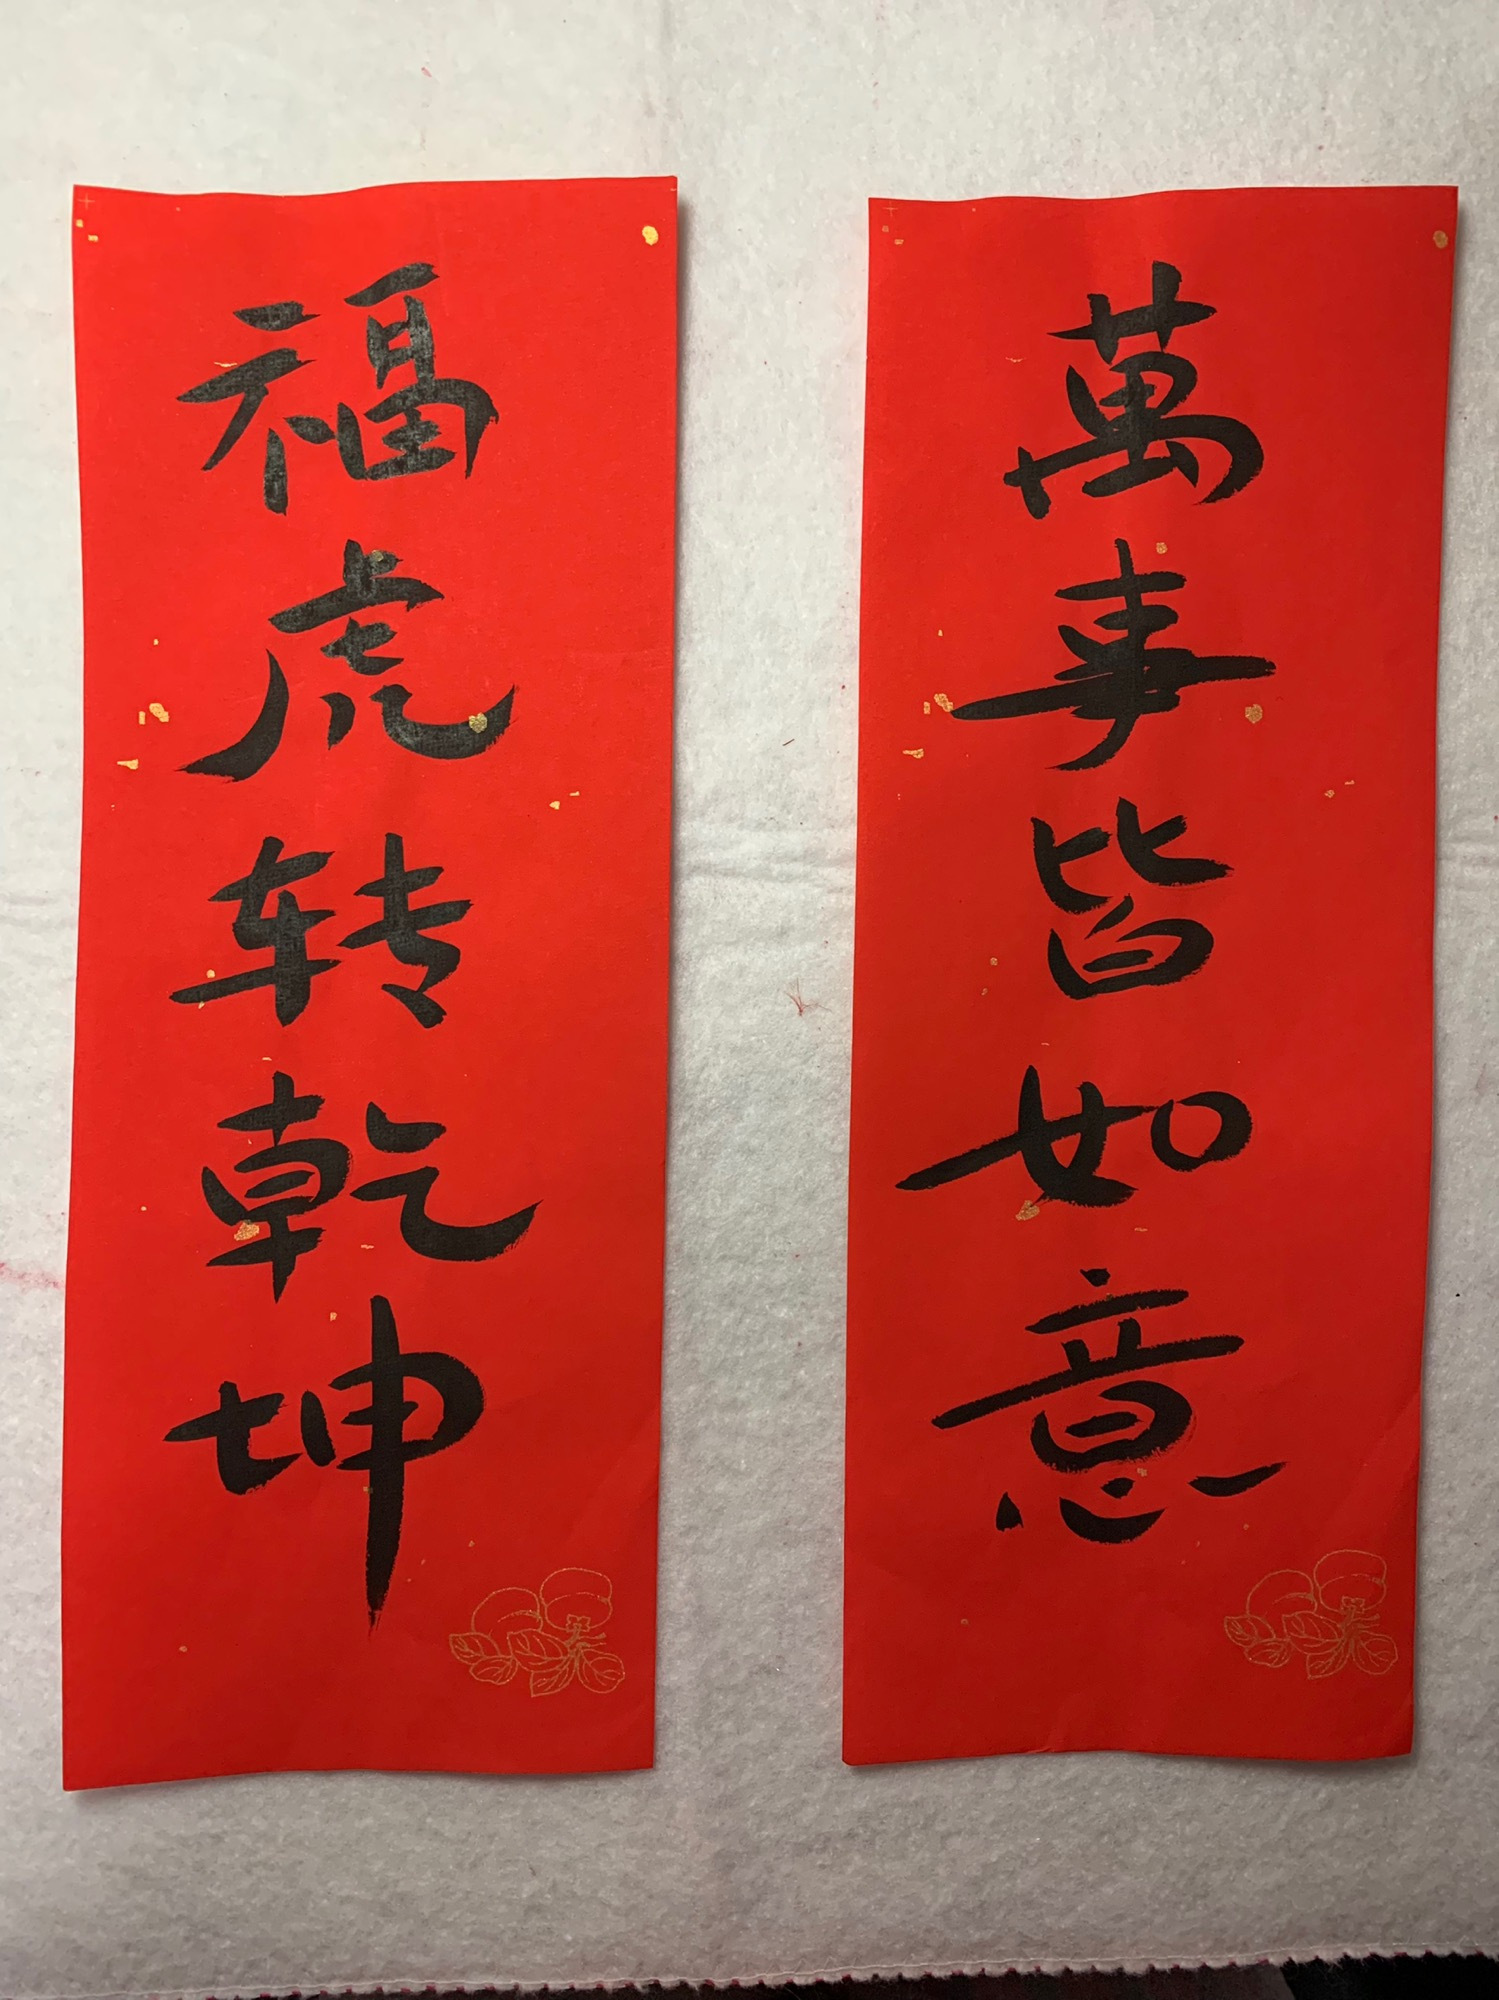 萬事皆如意
福虎转乾坤